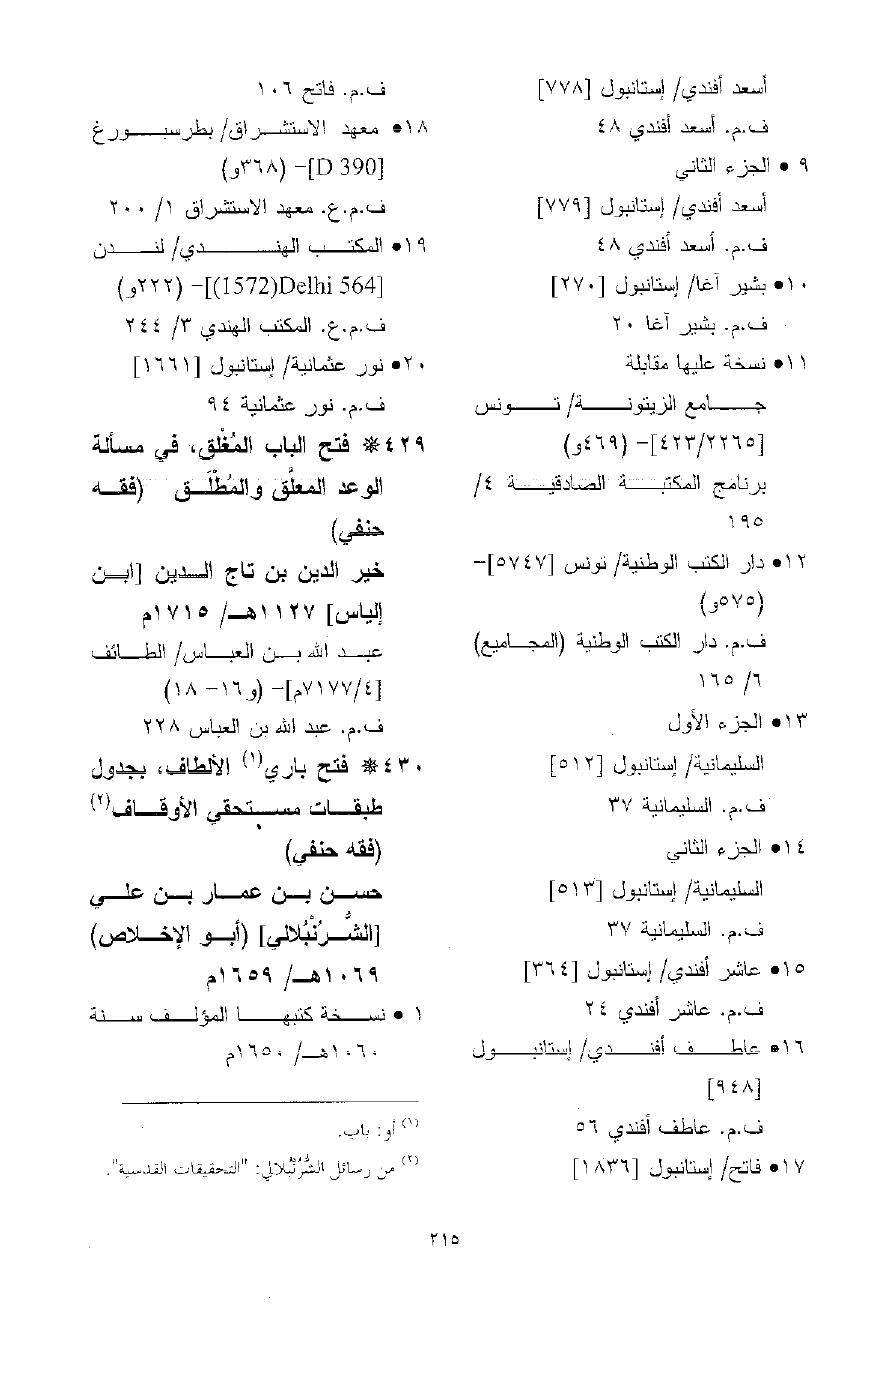 أسعد أفندي/ إستانبول [٧٧٨]
ف.م. أسعد أفندي ٤٨
٩ • الجزء الثاني
أسعد أفندي/ إستانبول [٧٧٩]
ف.م. أسعد أفندي ٤٨
١٠• بشير آغا/ إستانبول [٢٧٠]
ف.م. بشير آغا ٢٠
١١• نسخة عليها مقابلة
جامع الزيتونة/ تونس
[٤٢٣/٢٢٦٥]- (٤٦٩و)
برنامج المكتبة الصادقية ٤/
١٩٥
١٢• دار الكتب الوطنية/ تونس [٥٧٤٧]-
(٥٧٥و)
ف.م. دار الكتب الوطنية (المجاميع)
٦/ ١٦٥
١٣• الجزء الأول
السليمانية/ إستانبول [٥١٢]
ف.م. السليمانية ٣٧
١٤• الجزء الثاني
السليمانية/ إستانبول [٥١٣]
ف.م. السليمانية ٣٧
١٥• عاشر أفندي/ إستانبول [٣٦٤]
ف.م. عاشر أفندي ٢٤
١٦• عاطف أفندي/ إستانبول
[٩٤٨]
ف.م. عاطف أفندي ٥٦
١٧• فاتح/ إستانبول [١٨٣٦]
ف.م. فاتح ١٠٦
١٨• معهد الاستشراق/ بطرسبورغ
[D 390]- (٣٦٨و)
ف.م.ع. معهد الاستشراق ١/ ٢٠٠
١٩• المكتب الهندي/ لندن
[Delhi 564(1572)]- (٢٢٢و)
ف.م.ع. المكتب الهندي ٣/ ٢٤٤
٢٠• نور عثمانية/ إستانبول [١٦٦١]
ف.م. نور عثمانية ٩٤
٤٢٩* فتح الباب المُغْلَق، في مسألة
الوعد المعلَّق والمُطْلَق (فقه
حنفي)
خير الدين بن تاج الدين [ابن
إلياس] ١١٢٧هـ/ ١٧١٥م
عبد الله بن العباس/ الطائف
[٧١٧٧/٤م]- (و١٦- ١٨)
ف.م. عبد الله بن العباس ٢٢٨
٤٣٠* فتح باري(١) الألطاف، بجدول
طبقات مستحقي الأوقاف(٢)
(فقه حنفي)
حسن بن عمار بن علي
[الشُّرُنْبُلالي] (أبو الإخلاص)
١٠٦٩هـ/ ١٦٥٩م
١ • نسخة كتبها المؤلف سنة
١٠٦٠هـ/ ١٦٥٠م
(١) أو: باب.
(٢) من رسائل الشُّرُنْبُلالي: "التحقيقات القدسية".
٢١٥